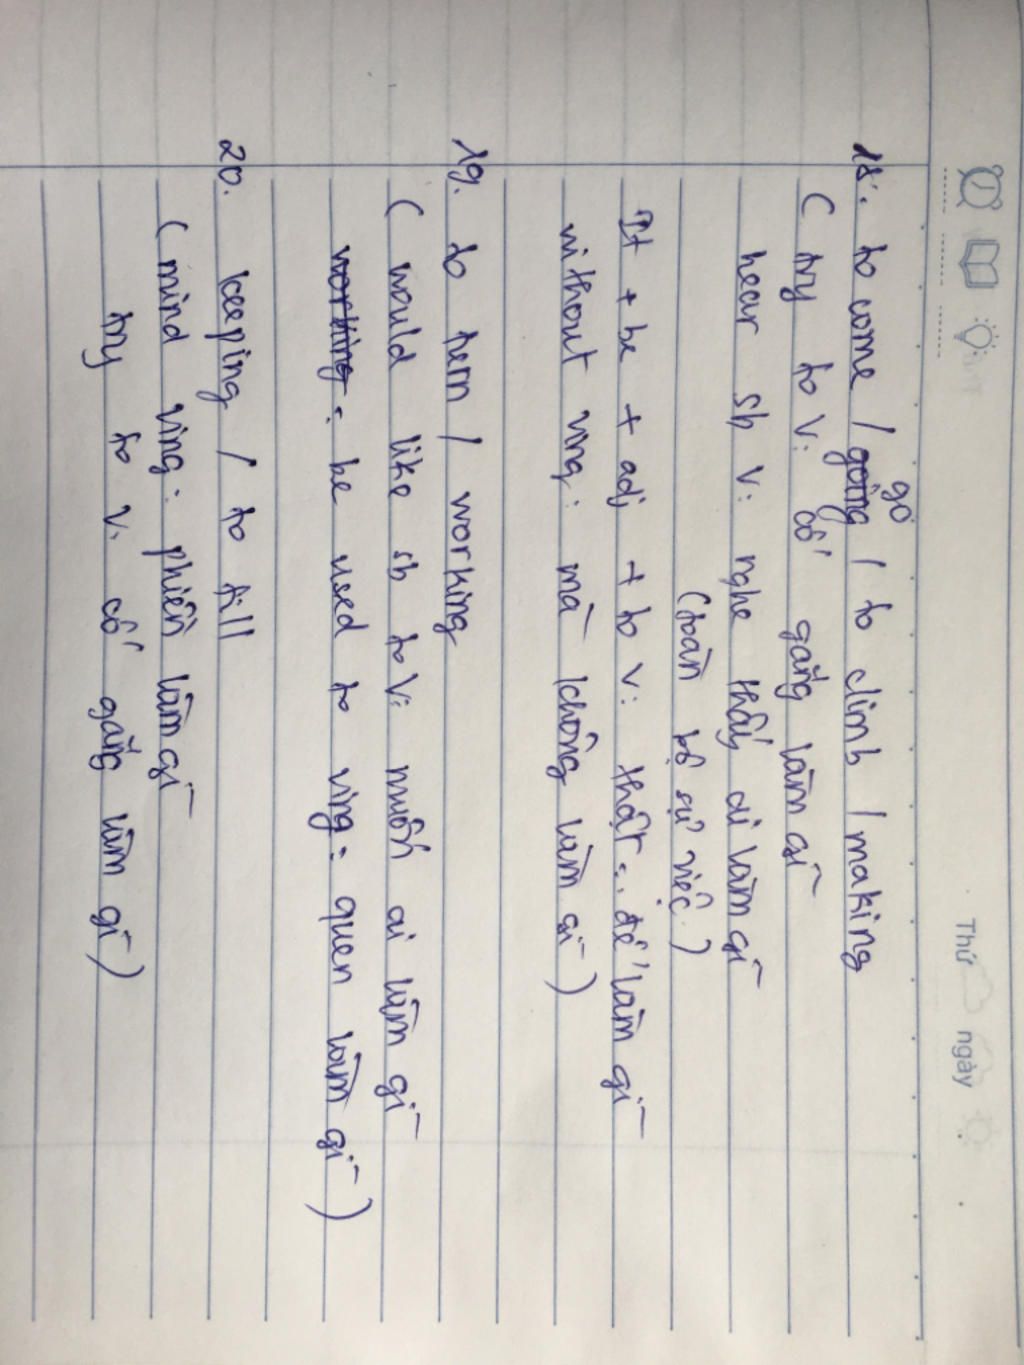 Thứ ngày
18. to come / going go / to climb / making
( try to V: cố gắng làm gì
hear sb V: nghe thấy ai làm gì
(toàn bộ sự việc.)
It + be + adj + to V: thật.. để làm gì
without ving: mà không làm gì )
19. to turn / working
( would like sb to V: muốn ai làm gì
working: be used to ving: quen làm gì )
20. keeping / to fill
( mind ving: phiền làm gì
try to V: cố gắng làm gì )